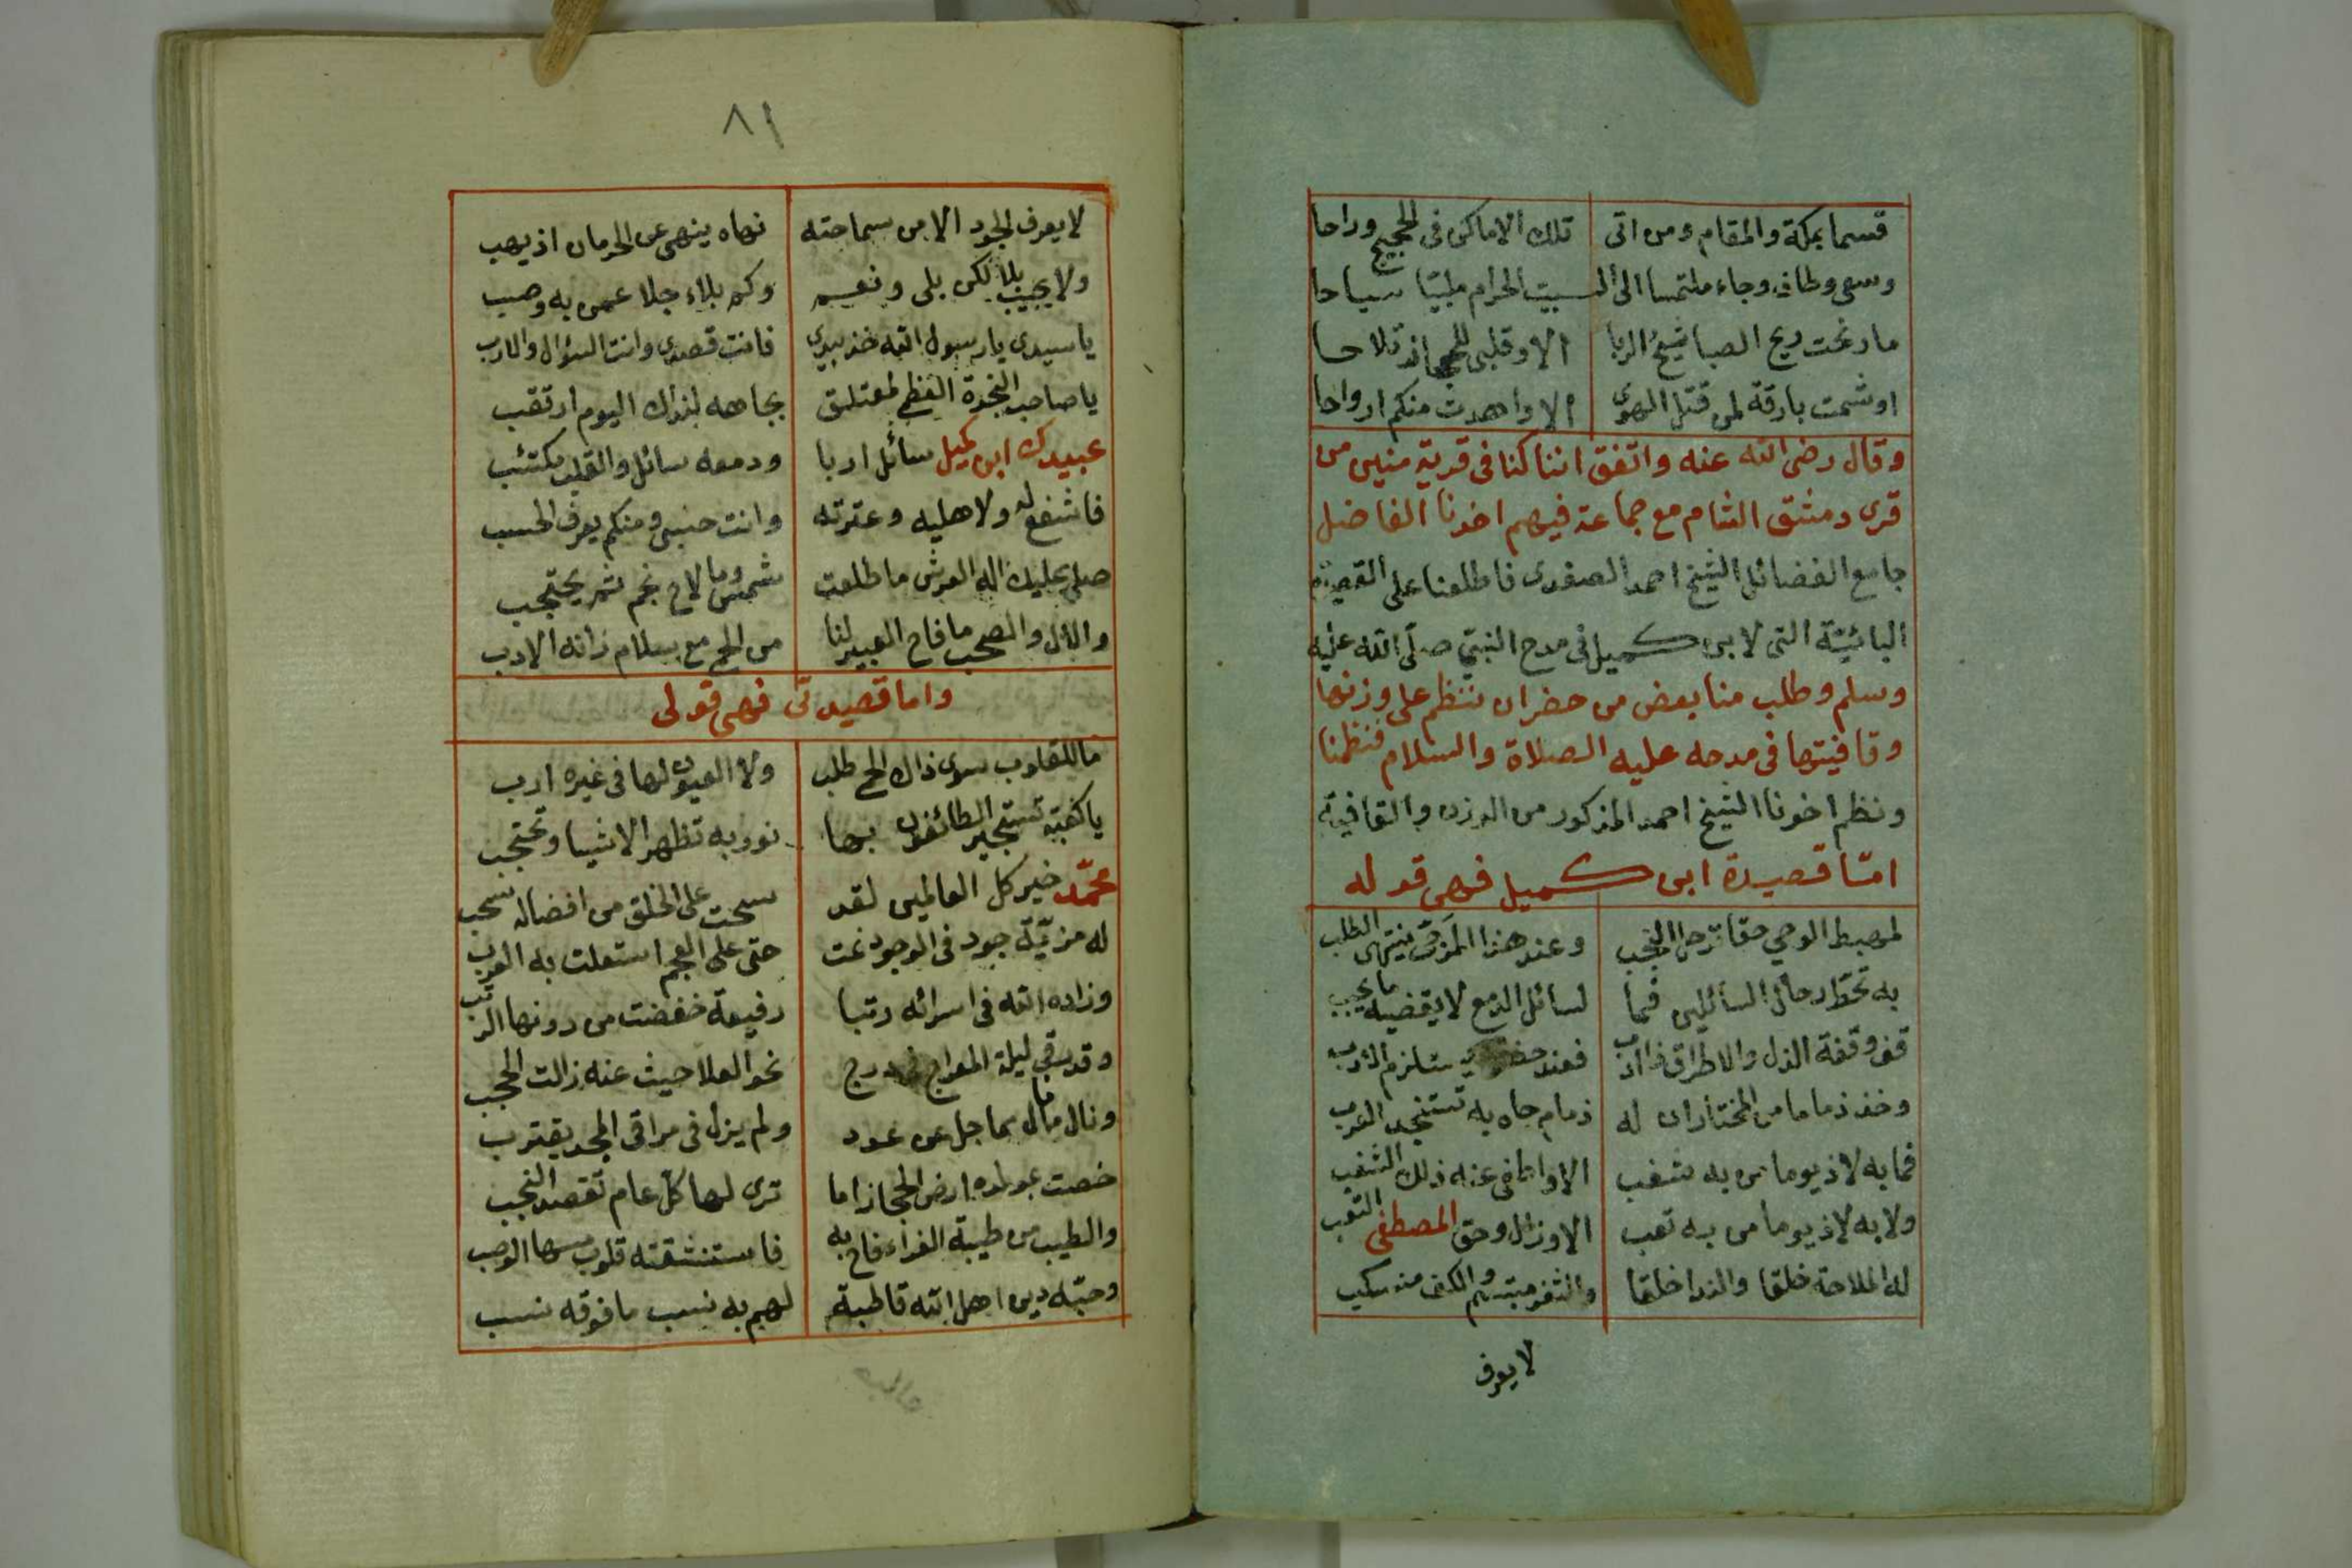 قسما بمكة والمقام ومن اتى تلك الاماكن فى الحجيج وراحا
وسعى وطاف وجاء ملتمسا الى البيت الحرام ملبيّا سياحا
ما رنحت ريح الصبا شيخ الربا الا وقلبى
او شمت بارقة لمن قتل الهوى الا واهدت منكم ارواحا
وقال رضى الله عنه واتفق اننا كنا فى قرية منين من
قرى دمشق الشام مع جماعة فيهم اخونا الفاضل
جامع الفضائل الشيخ احمد الصفدى فاطلعنا على القصيدة
البائيّة التى لابى كميل فى مدح النبىّ صلّى الله عليه
وسلم وطلب منا بعض من حضر ان ننظم على وزنها
وقافيتها فى مدحه عليه الصلاة والسلام فنظمنا
ونظم اخونا الشيخ احمد المذكور من الوزن والقافية
امّا قصيدة ابى كميل فهى قوله
لمهبط الوحي حقا ترحل النجب وعند هذا المرجّى ينتهى الطلب
به تحط رحال السائلين فما لسائل الدمع لا يقضيه ما يجب
قف وقفة الذل والاطراق ذا ادب فعند يستلزم الادب
وخذ ذماما من المختار ان له ذمام جاه به تستنجد العرب
فما به لاذ يوما من به شغب الا واطفى عنه ذلك الشغب
ولا به لاذ يوما من به تعب الا وزال وحق المصطفى التعب
له الملاحة خلقا والندا خلقا والثغر مبتسم والكف منسكب
لا يعرف
٨١
لا يعرف الجود الا من سماحته نهاه ينهى عن الحرمان اذ يهب
ولا يجيب بلا لكن بلى ونعم وكم بلاء جلا عمن به وصب
يا سيدى يا رسول الله خذ بيدى فانت قصدى وانت السؤال والارب
يا صاحب النجدة العظمى لمعتلق بجاهه لنداك اليوم ارتقب
عبيدك ابن كميل سائل اربا ودمعه سائل والقلب مكتئب
فاشفع له ولاهليه وعترته وانت حسبى ومنكم يعرف الحسب
صلى عليك اله العرش ما طلعت شمس وما لاح نجم ثم يحتجب
والال والصحب ما فاح العبير لنا من الحى مع سلام زانه الادب
واما قصيدتى فهى قولى
ما للقلوب سوى ذاك الحمى طلب ولا العيون لها فى غيره ارب
يا كعبة تستجير الطائفون بها نور به تظهر الاشيا وتحتجب
محمّد خير كل العالمين لقد سحت على الخلق من افضاله سحب
له مزيّة جود فى الوجود نمت حتى على العجم استعلت به العرب
وزاده الله فى اسرائه رتبا رفيعة خفضت من دونها الرتب
وقد رقى ليلة المعراج فى درج نحو العلا حيث عنه زالت الحجب
ونال ما نال مما جل عن عدد ولم يزل فى مراقى المجد يقترب
خصت بمولده ارض الحجاز اما ترى لها كل عام تقصد النجب
والطيب من طيبة الغراء فاح به فاستنشقته قلوب مسها الوصب
وحبّه دين اهل الله قاطبة لهم به نسب ما فوقه نسب